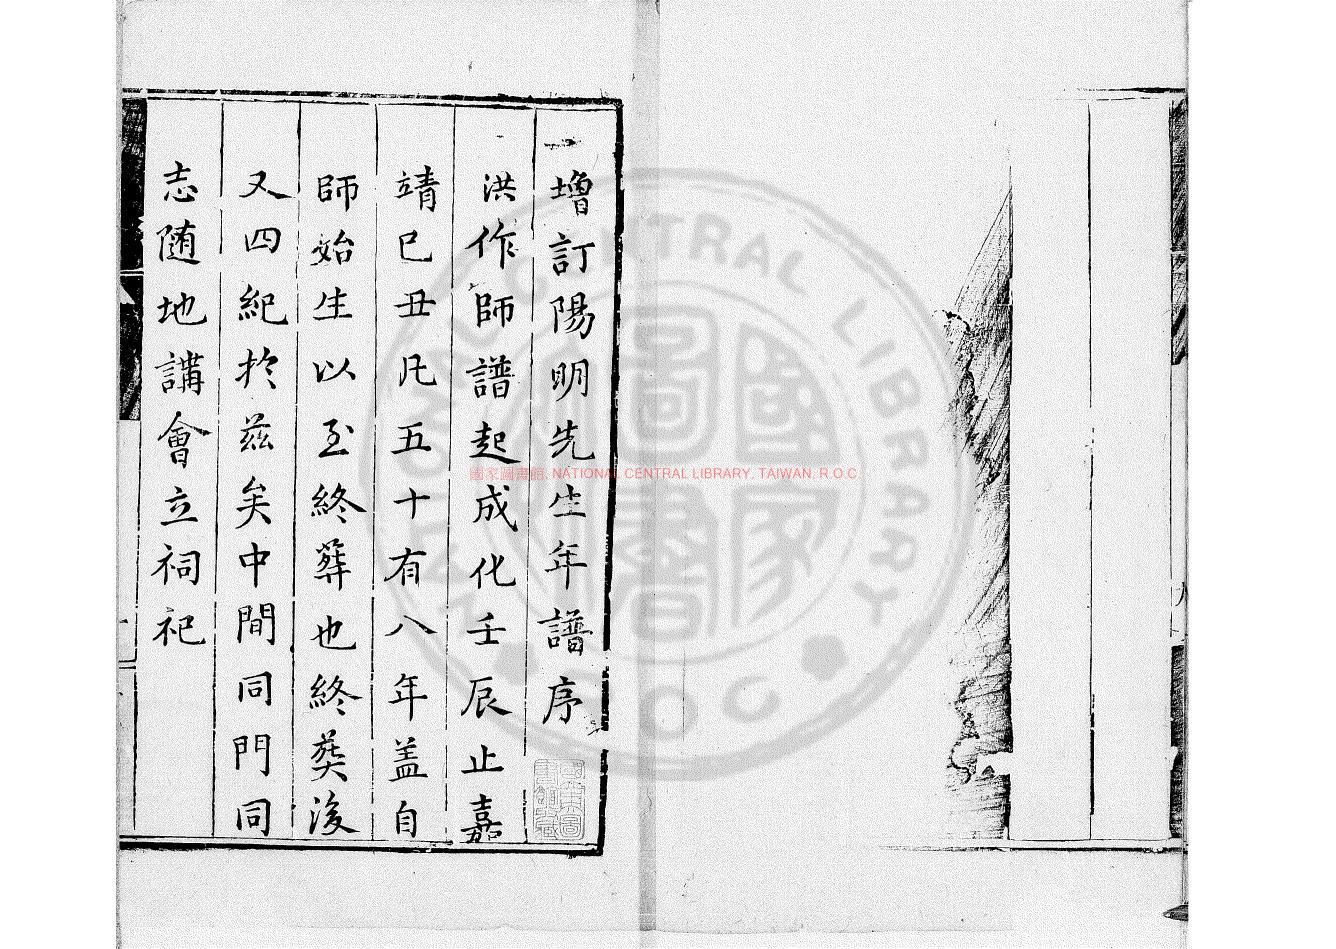 增訂陽明先生年譜序
洪作師譜起成化壬辰止嘉
靖已丑凡五十有八年盖自
師始生以至終葬也終葬後
又四紀於茲矣中間同門同
志随地講會立祠祀
國家圖書館, NATIONAL CENTRAL LIBRARY, TAIWAN, R.O.C
國家圖書
NATIONAL CENTRAL LIBRARY
ROC